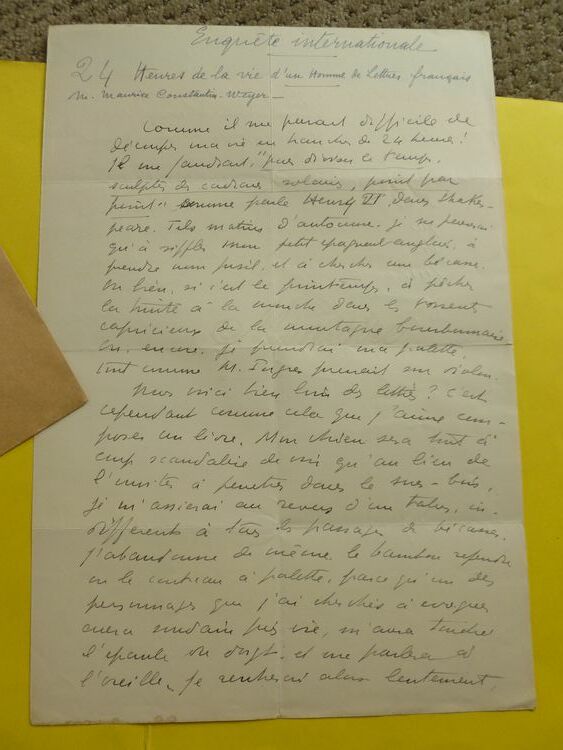 Enquête internationale
24 Heures de la vie d'un Homme de Lettres français
M. Maurice Constantin-Weyer —
Comme il me paraît difficile de
découper ma vie en tranches de 24 heures!
Il me faudrait, "pour diviser le temps,
sculpter des cadrans solaires, point par
point" comme parle Henry VI, dans Shakes-
peare. Tels matins d'automne, je ne penserai
qu'à siffler mon petit épagneul anglais, à
prendre mon fusil, et à chercher une bécasse.
Ou bien, si c'est le printemps, à pêcher
la truite à la mouche dans les torrents
capricieux de la montagne bourbonnaise.
Ou, encore, je prendrai ma palette,
tout comme M. Ingres prenait son violon.
Nous voici bien loin des lettres? C'est
cependant comme cela que j'aime com-
poser un livre. Mon chien sera tout à
coup scandalisé de voir qu'au lieu de
l'inviter à pénétrer dans le sous-bois,
je m'assierai au revers d'un talus, in-
différent à tous les passages de bécasses.
J'abandonne de même le bambou refendu
ou le couteau à palette, parce qu'un des
personnages que j'ai cherchés à évoquer
aura soudain pris vie, m'aura touché
l'épaule du doigt, et me parlera à
l'oreille. Je rentrerai alors lentement,